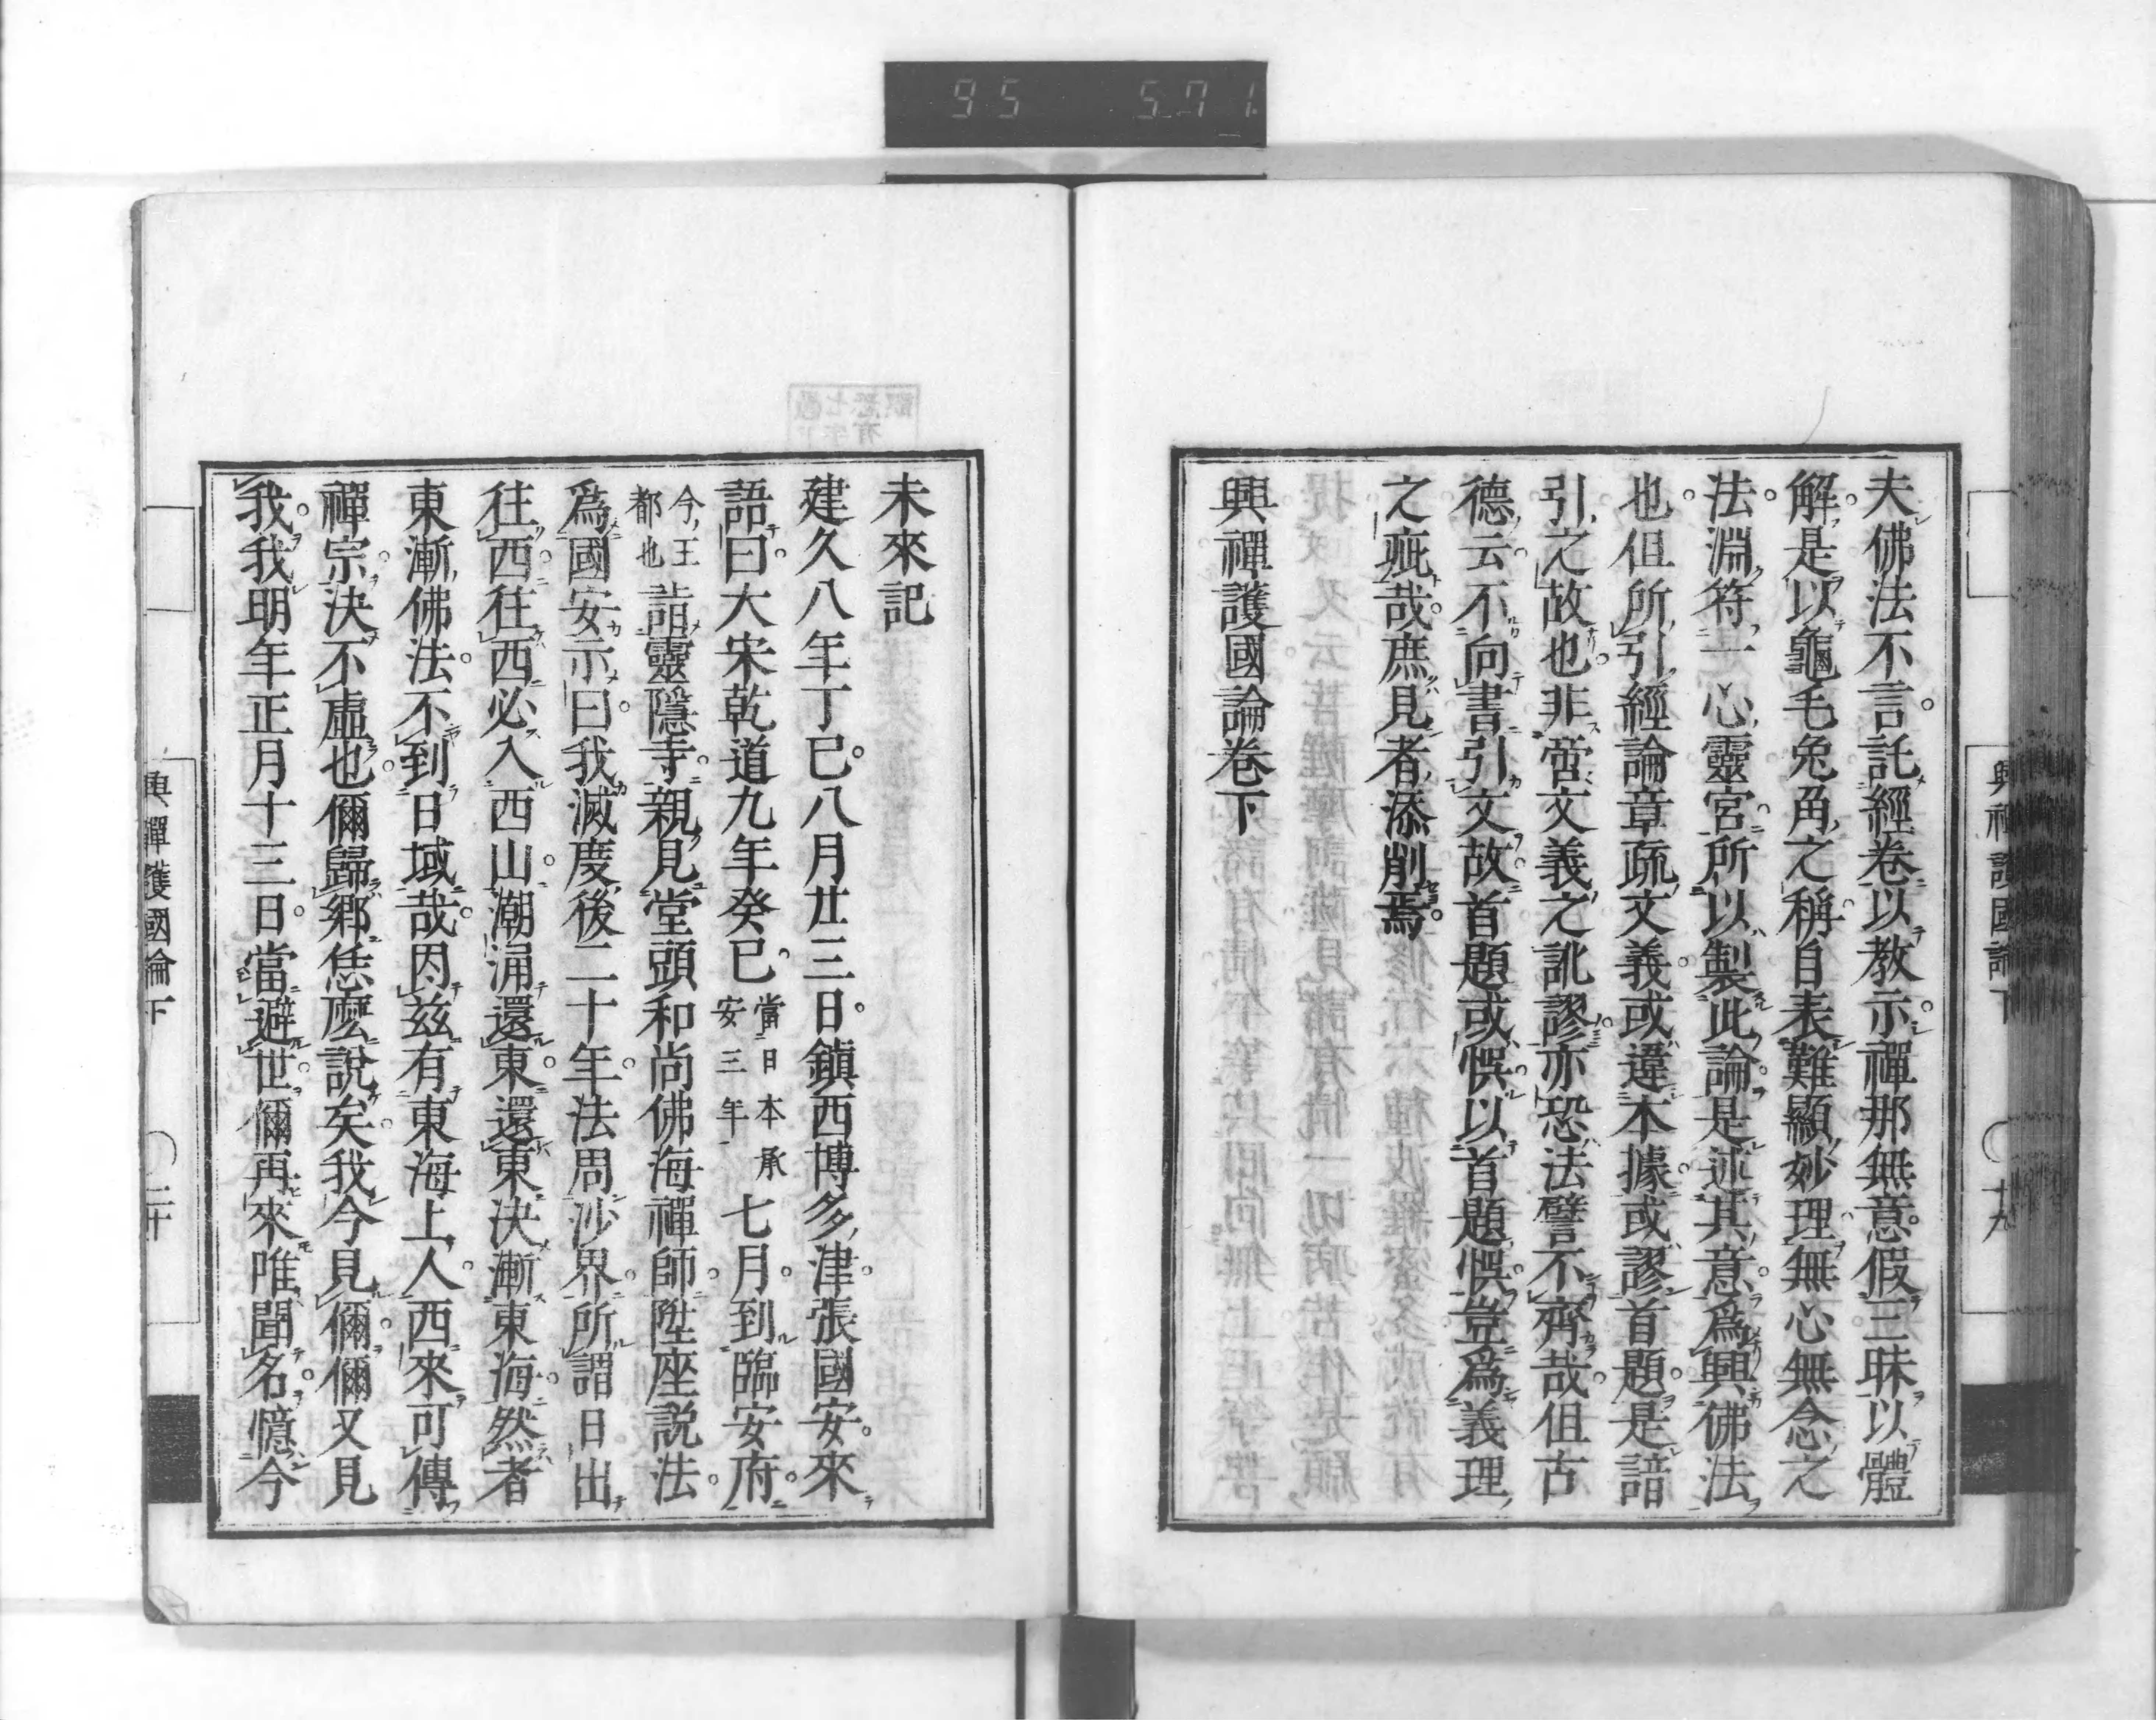 95 571
夫佛法不言。託經卷以教示。禪那無意。假三昧以體
解。是以龜毛兔角之稱。自表難顯妙理。無心無念之
法。淵符一心靈宮。所以製此論。是述其意。爲興佛法
也。但所引經論章疏文義。或違本據。或謬首題。是諳
引之故也。非啻文義之訛謬。亦恐法譬不齊哉。但古
德云。不向書引文。故首題或悞。以首題悞。豈爲義理
之疵哉。庶見者添削焉。
興禪護國論卷下
興禪護國論下 十九
未來記
建久八年丁巳。八月廿三日。鎭西博多津。張國安。來
語曰。大宋乾道九年癸巳。當日本承安三年七月。到臨安府。
今王都也詣靈隱寺。親見堂頭和尚佛海禪師。陞座説法。
爲國安示曰。我滅度後二十年。法周沙界。所謂日出
往西。往西必入西山。潮涌還東。還東決漸東海。然者
東漸佛法。不到日域哉。因茲有東海上人。西來可傳
禪宗。決不虛也。儞歸鄉恁麼說矣。我今見儞。儞又見
我。我明年正月十三日。當避世。儞再來唯聞名。憶今
興禪護國論下 二十